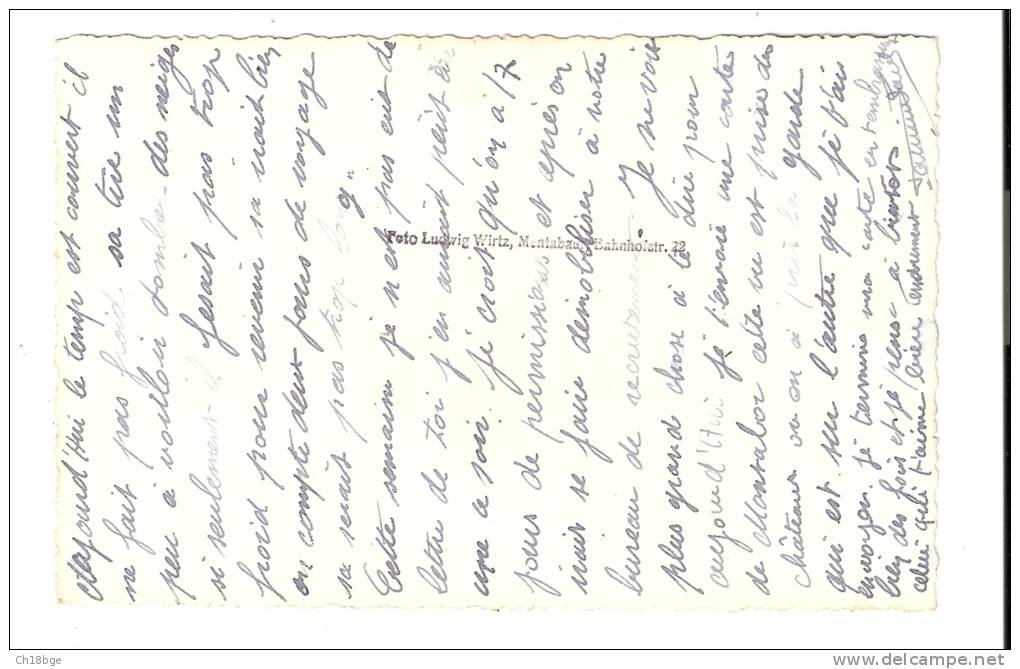 Aujourd'hui le temp est couvert il
ne fait pas froid. sa tire un
peu à vouloir tomber des neiges
si seulement il fesait pas trop
froid pour revenir sa irait bien
on compte deux jours de voyage
sa serait pas trop long.
Cette semaine je n'est pas eut de
lettre de toi j'en aurait peut être
une ce soir. je croit qu'on a 17
jours de permissions et après on
irait se faire demobiliser à notre
bureau de recrutement. Je ne voit
plus grand chose à te dire pour
aujourd'hui je t'envoie une carte
de Montabor cete vu est prise du
château ou on a pris la garde
qui est sur l'autre que je t'ais
envoyer. je termine ma carte en t'embrassant
bien des fois et je pense à bientot
celui qui t'aime bien tendrement
Foto Ludwig Wirtz, Montabaur, Bahnhofstr. 22
Ch18bge
www.delcampe.net